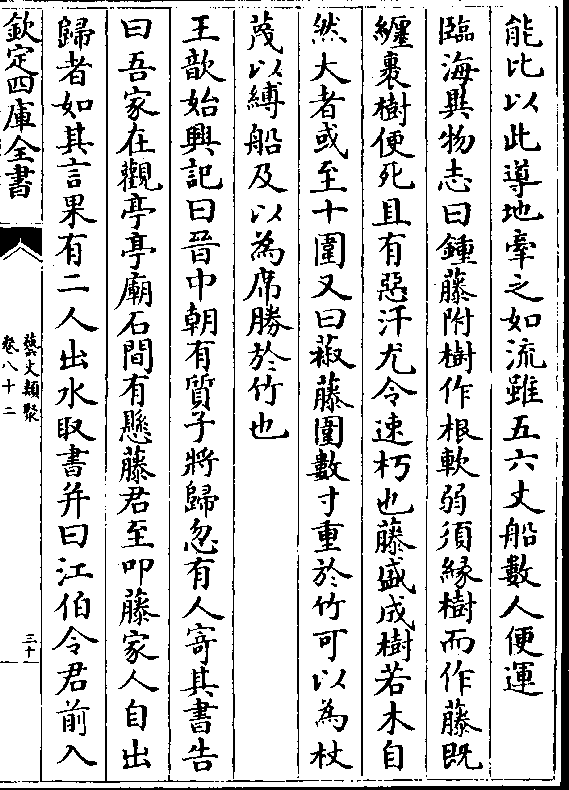 能比以此導地牽之如流雖五六丈船數人便運
臨海異物志曰鍾藤附樹作根軟弱須緣樹而作藤既
纒裹樹便死且有惡汗尤令速朽也藤盛成樹若木自
然大者或至十圍又曰椒藤圍數寸重於竹可以為杖
篾以縛船及以為席勝於竹也
王歆始興記曰晉中朝有質子將歸忽有人寄其書告
曰吾家在觀亭亭廟石間有懸藤君至叩藤家人自出
歸者如其言果有二人出水取書并曰江伯令君前入
欽定四庫全書
藝文類聚
卷八十二
三十